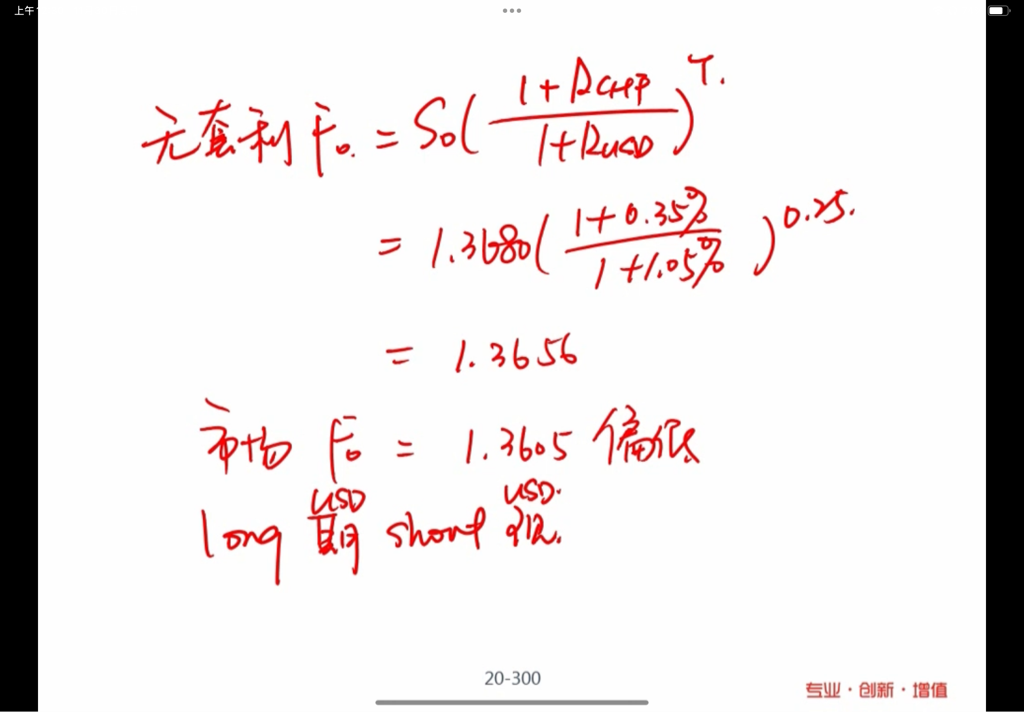 上午
无套利 F₀. = S₀((1+R_CHF)/(1+R_USD))^T.
= 1.3680((1+0.35%)/(1+1.05%))^0.25.
= 1.3656
市场 F₀ = 1.3605 偏低
USD USD.
long 期 short 现.
20-300
专业·创新·增值